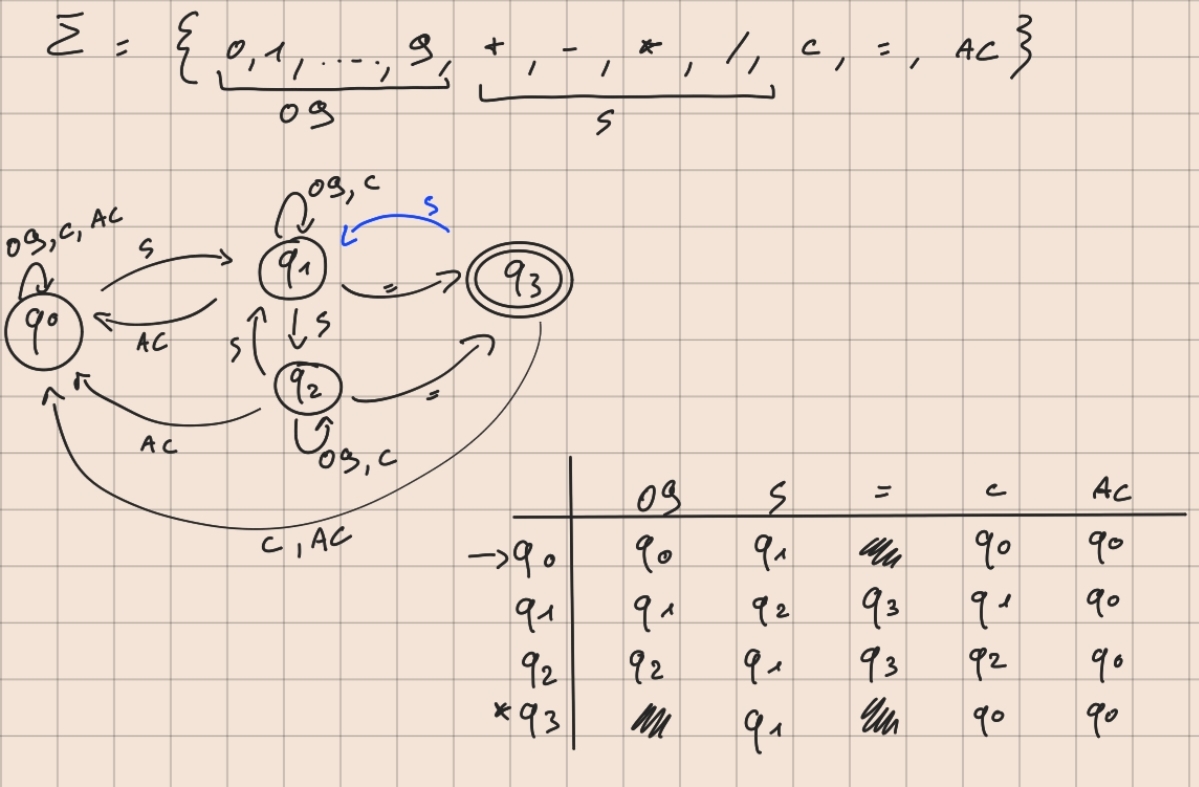 Σ = { 0, 1, ...., 9, +, -, *, /, c, =, AC }
09 S
09, c
S
09, c, AC
S
q1
q3
=
q0
AC
S
S
q2
=
AC
09, c
c, AC
09 S = c AC
→q0 q0 q1 q0 q0
q1 q1 q2 q3 q1 q0
q2 q2 q1 q3 q2 q0
*q3 q1 q0 q0